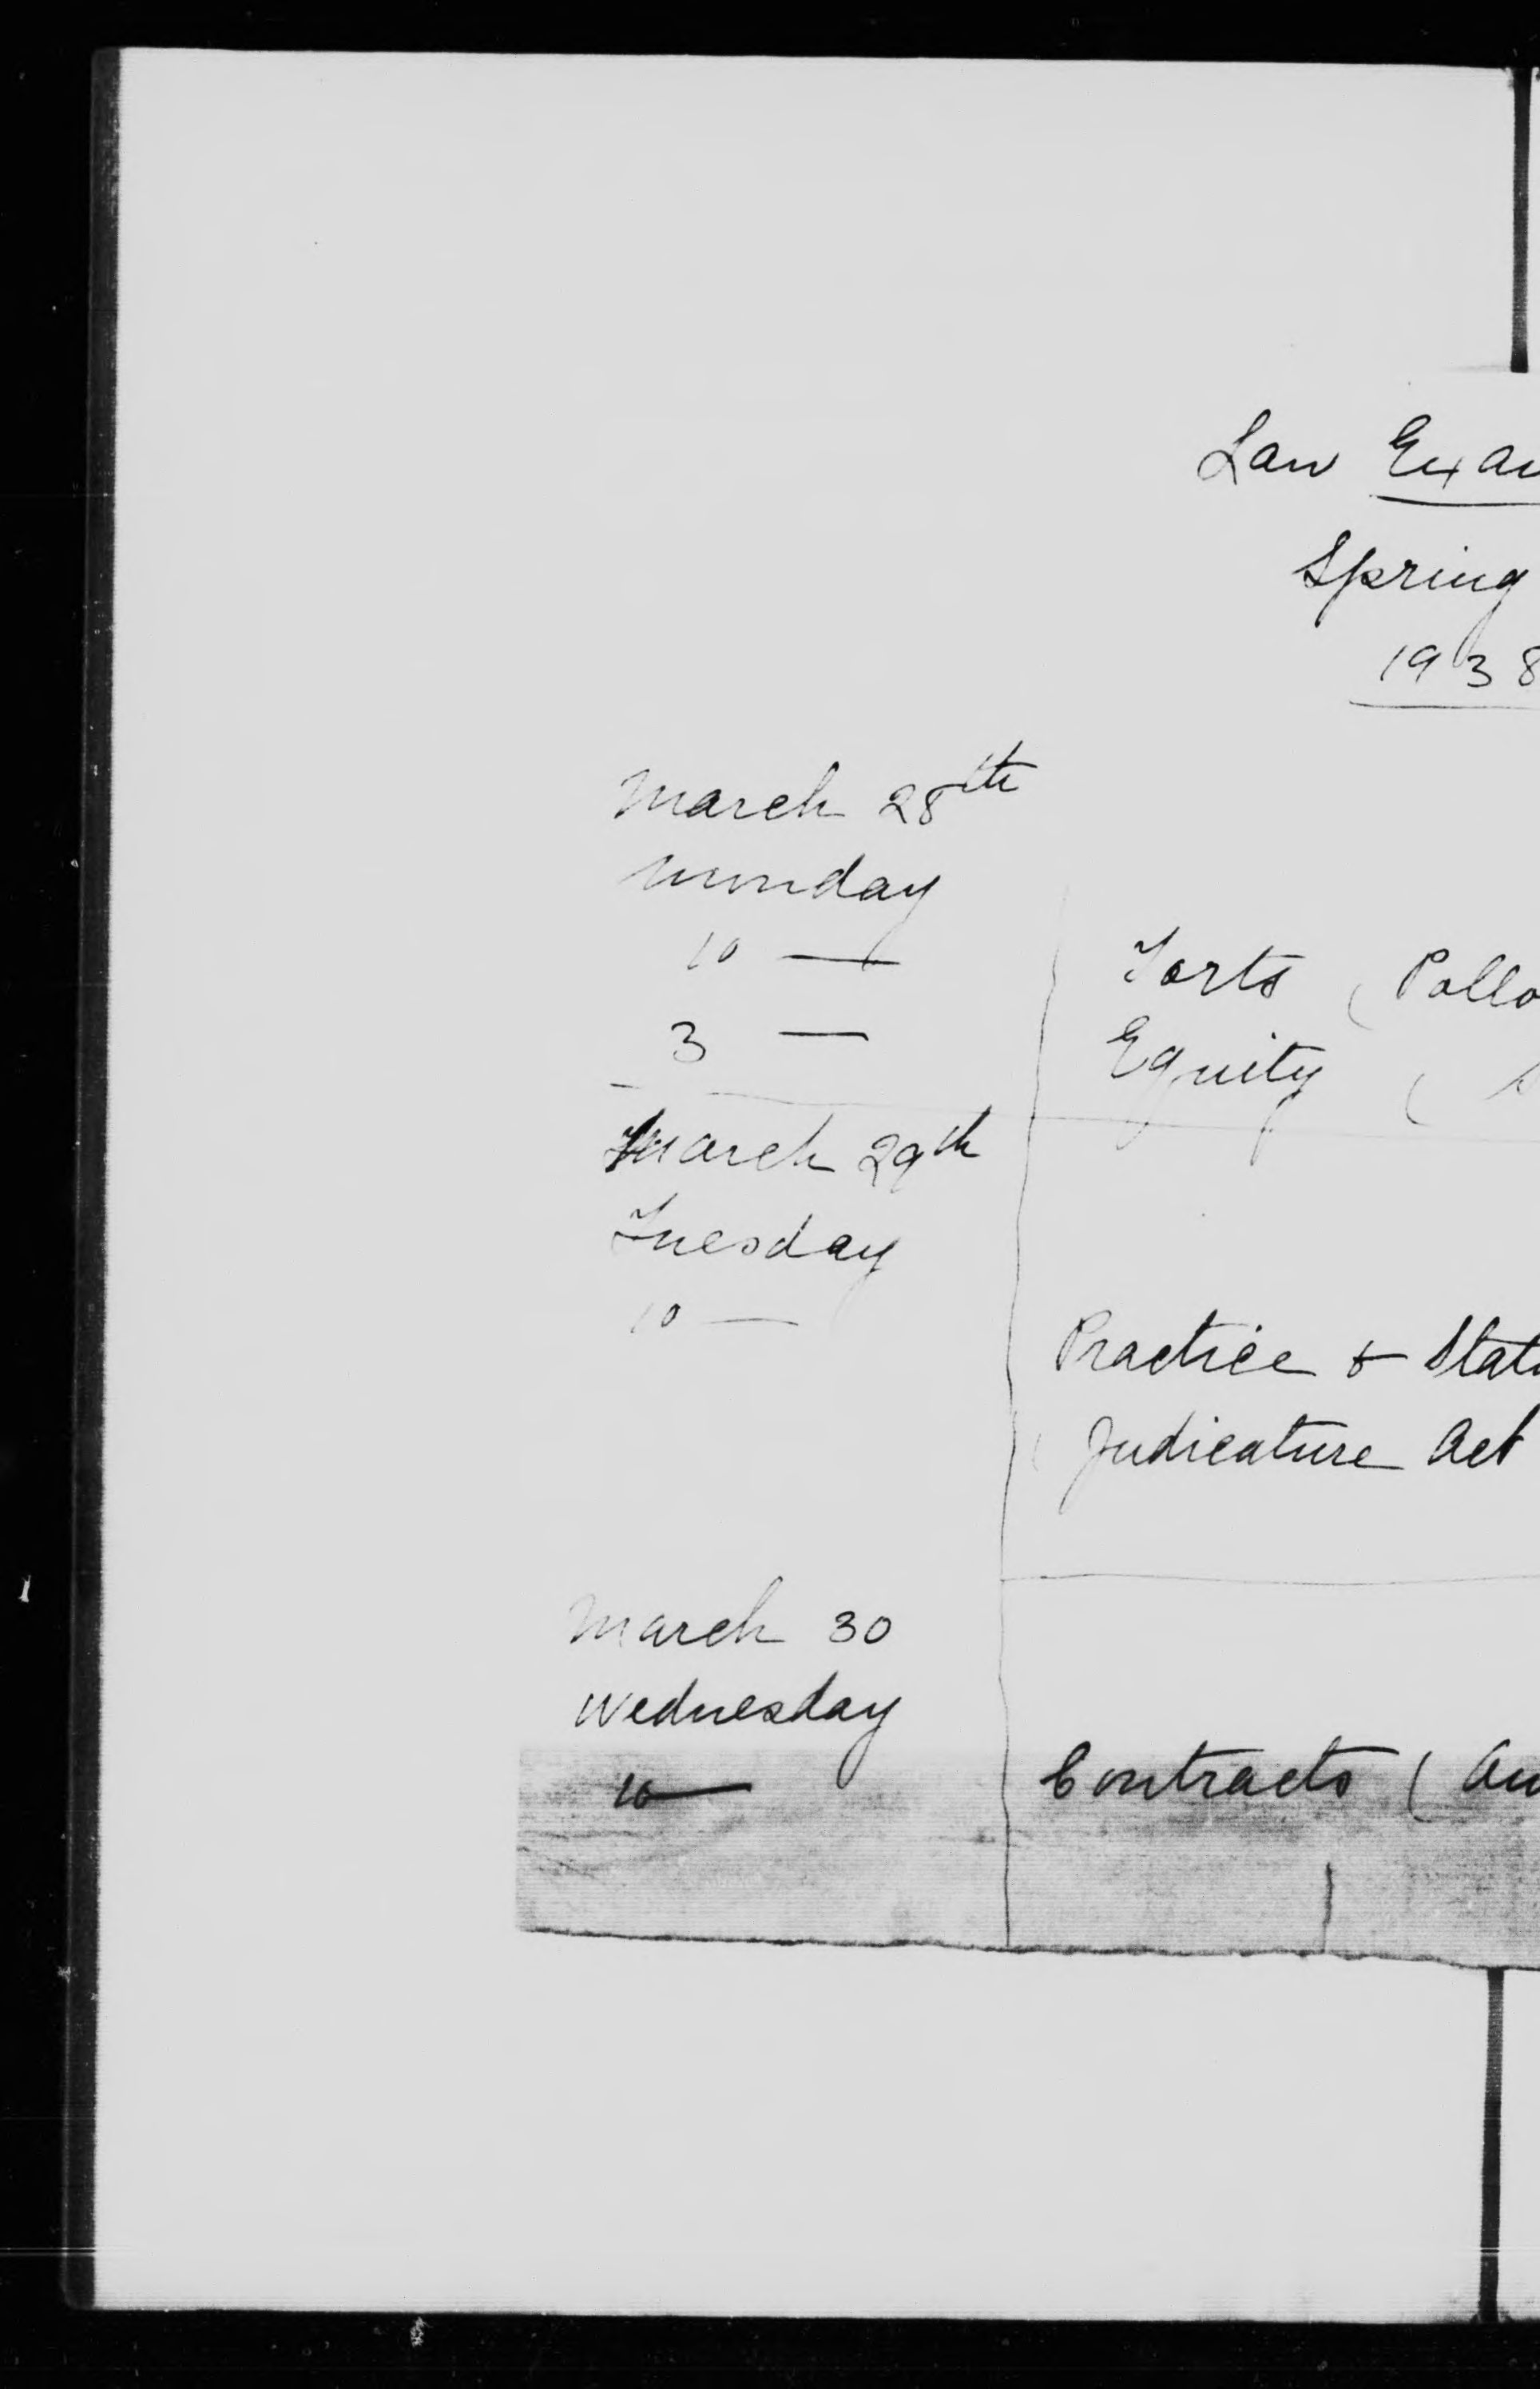 Law Exa
Spring
1938
March 28th
Monday
10 — Torts ( Pollo
3 — Equity (
March 29th
Tuesday
10 —
Practice & Statu
( Judicature Act
March 30
Wednesday
10 — Contracts ( An